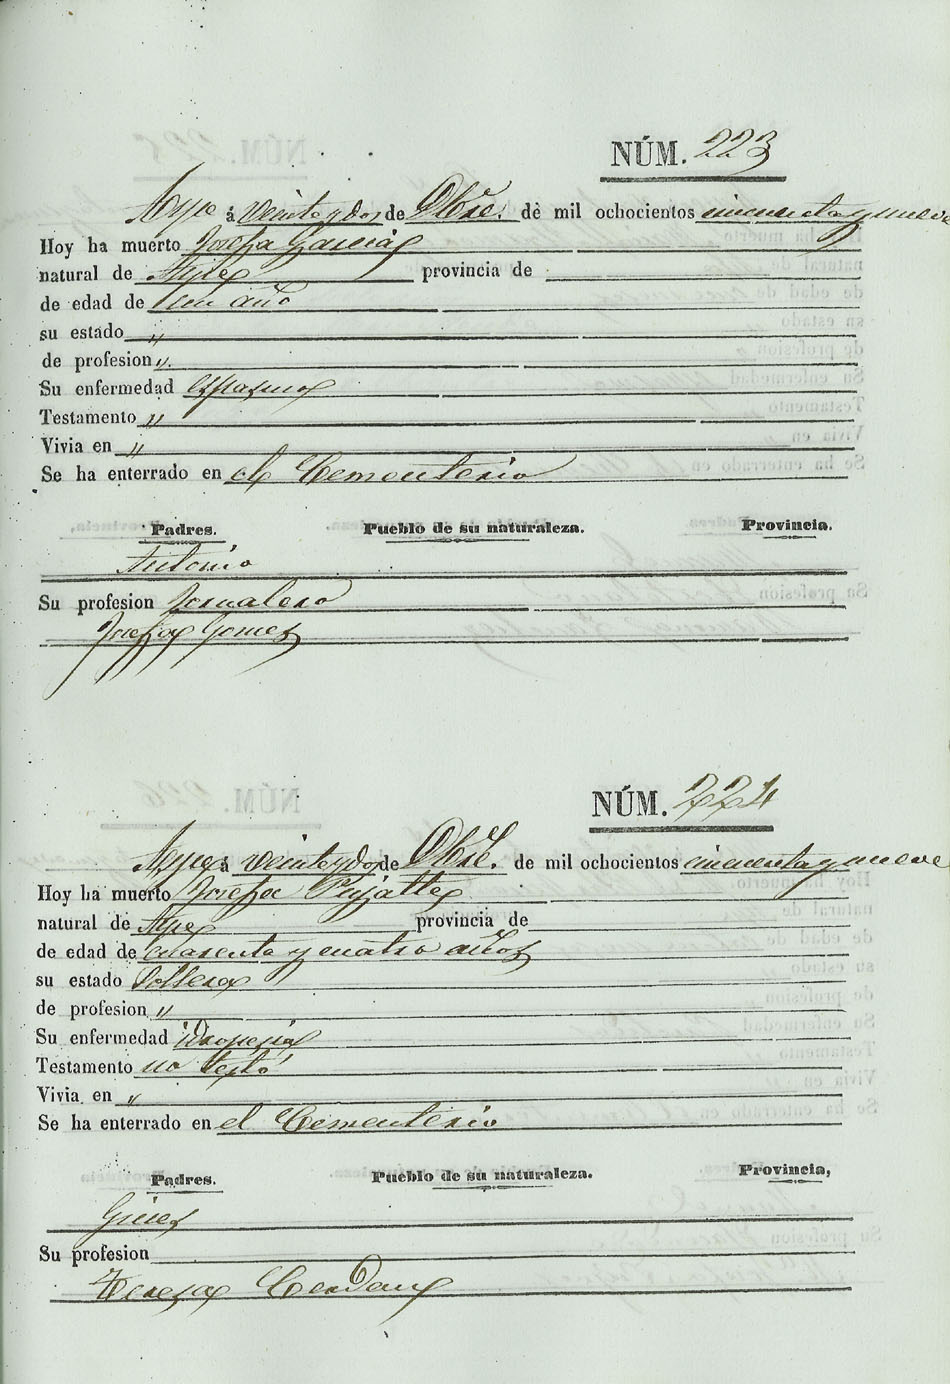 NÚM. 223
Aspe á veinte y dos de Obre. de mil ochocientos cincuenta y nueve
Hoy ha muerto Josefa Garcia
natural de Aspe provincia de
de edad de un año
su estado "
de profesion "
Su enfermedad espasmo
Testamento "
Vivia en "
Se ha enterrado en el Cementerio
Padres. Pueblo de su naturaleza. Provincia.
Antonio
Su profesion Jornalero
Josefa Gomez
NÚM. 224
Aspe á veinte y dos de Obre. de mil ochocientos cincuenta y nueve
Hoy ha muerto Josefa Pujalte
natural de Aspe provincia de
de edad de cuarenta y cuatro años
su estado Soltera
de profesion "
Su enfermedad idropesia
Testamento no testó
Vivia en "
Se ha enterrado en el Cementerio
Padres. Pueblo de su naturaleza. Provincia,
Gines
Su profesion
Teresa Cerdan